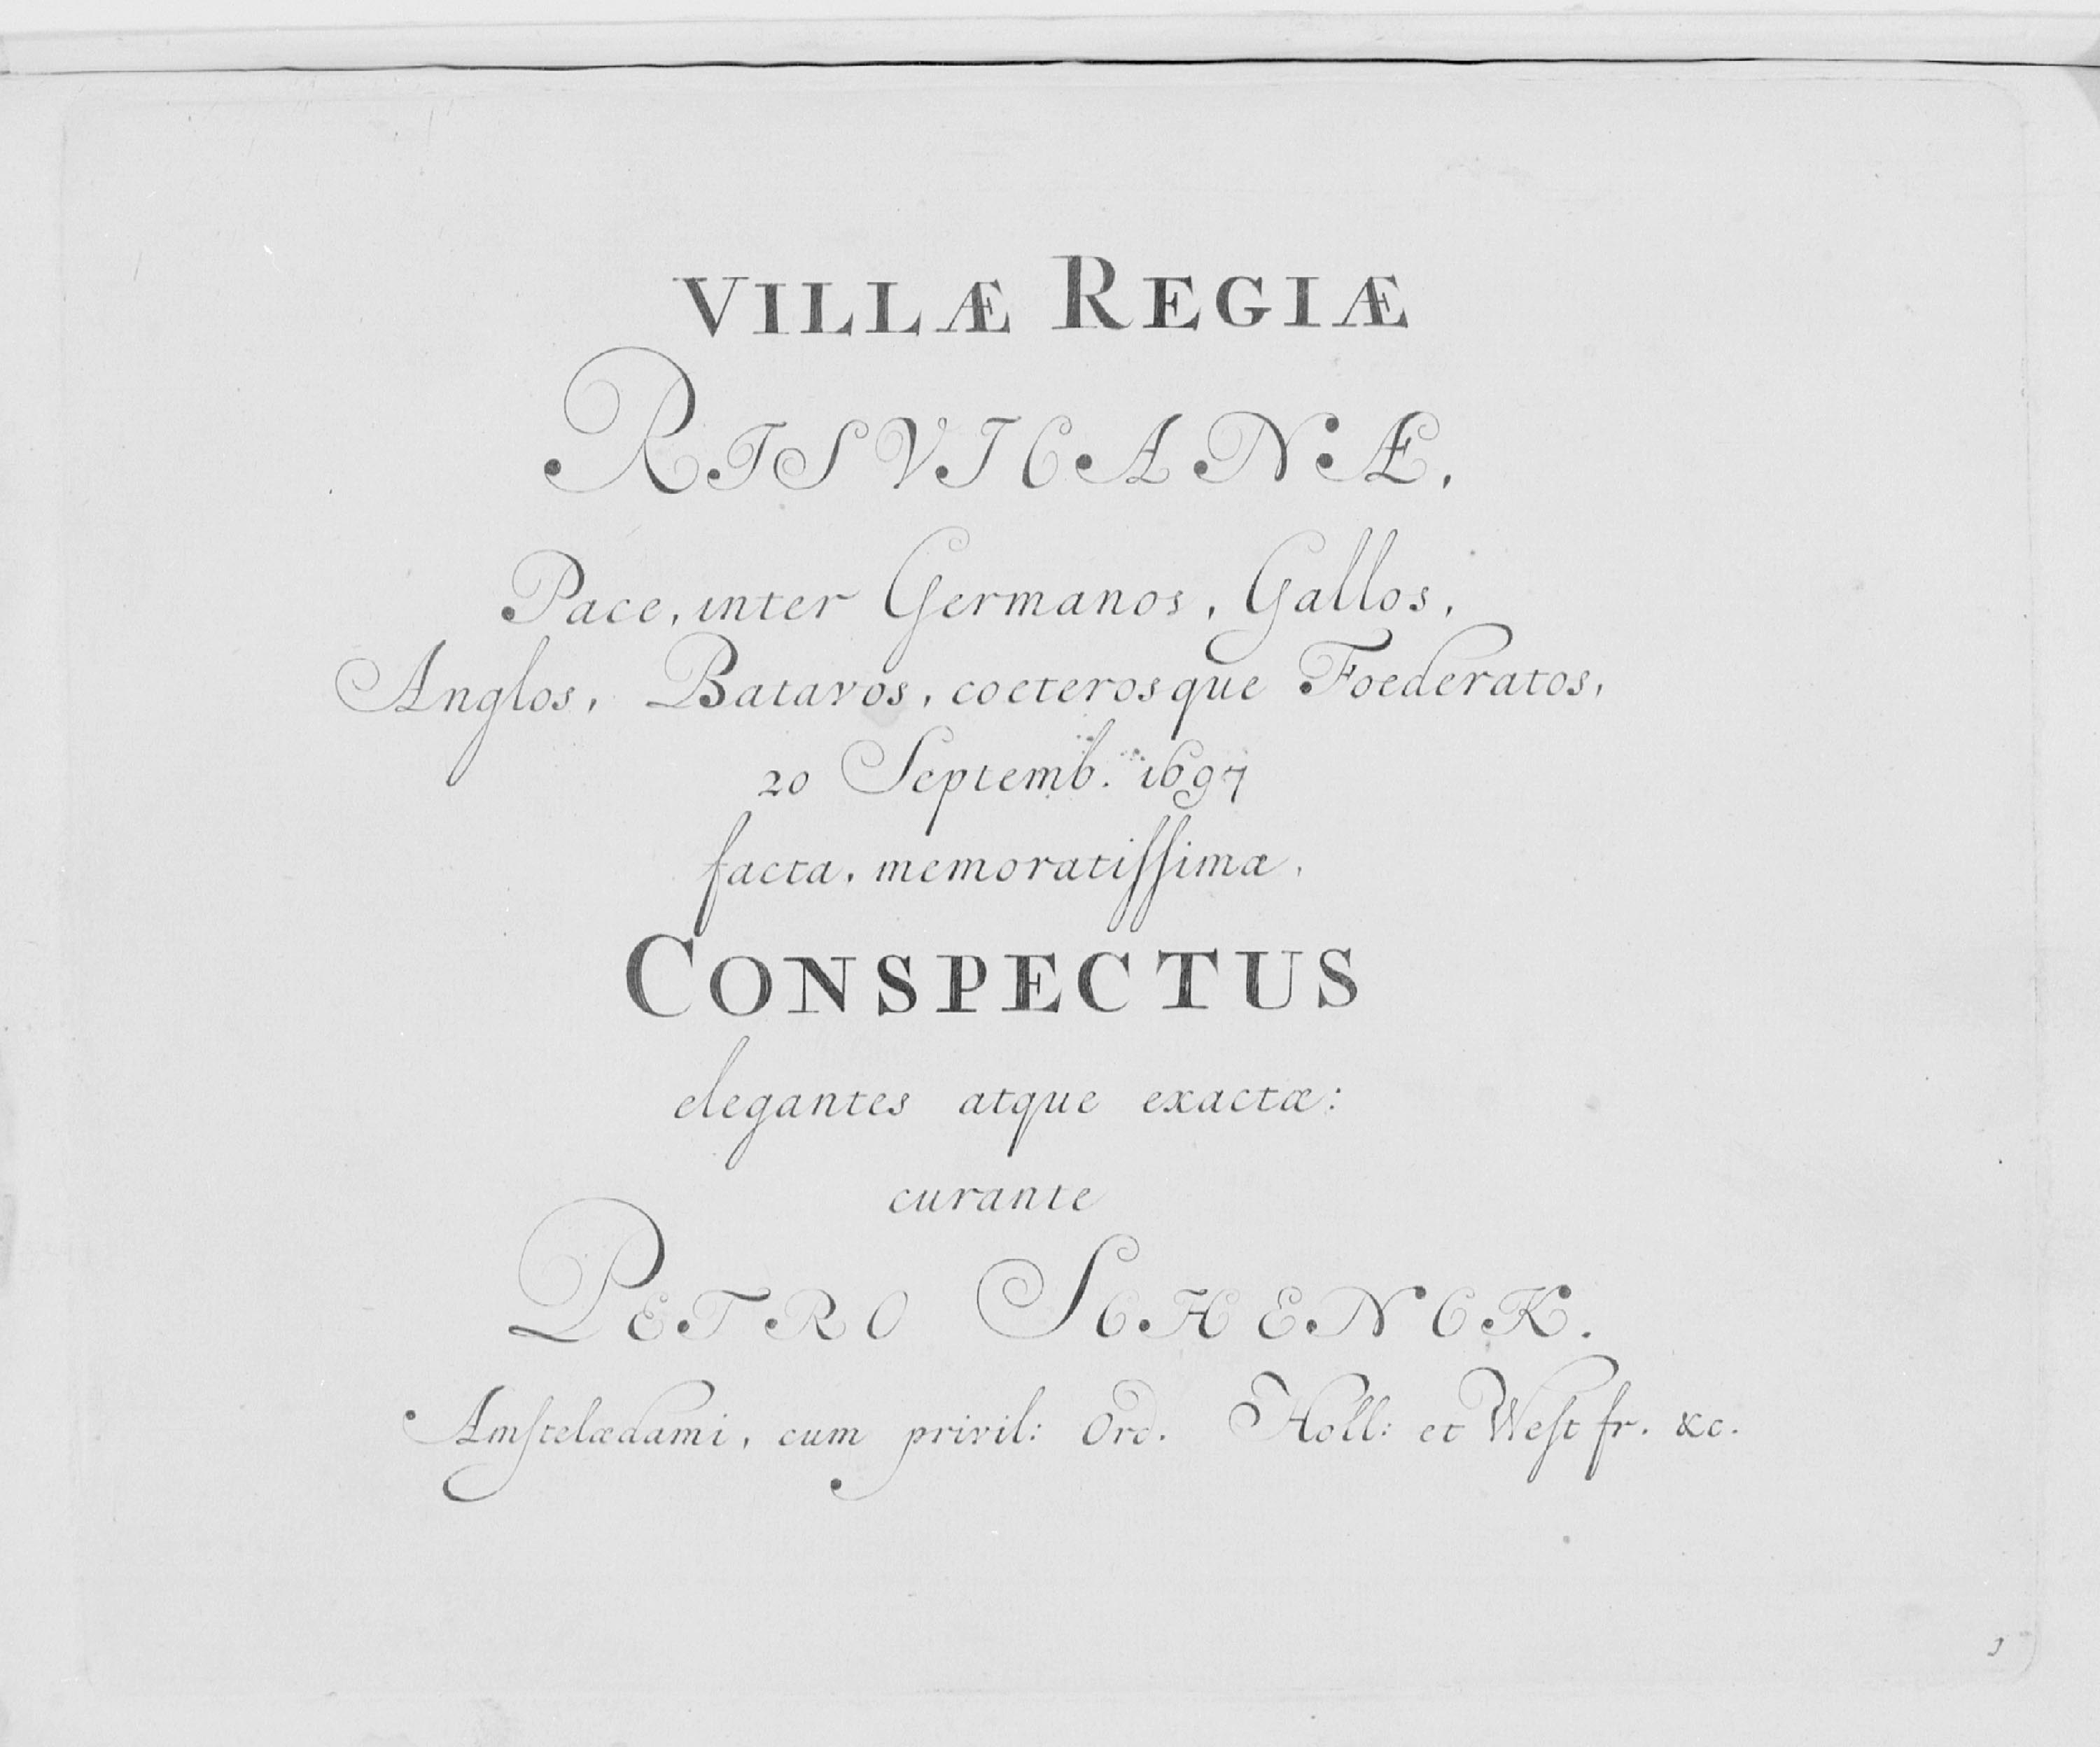 VILLÆ REGIÆ
RISVICANÆ,
Pace, inter Germanos, Gallos,
Anglos, Batavos, coeterosque Foederatos,
20 Septemb. 1697
facta, memoratiſſimæ,
CONSPECTUS
elegantes atque exactæ:
curante
PETRO SCHENCK.
Amſtelædami, cum privil: Ord. Holl: et Weſtfr. &c.
1